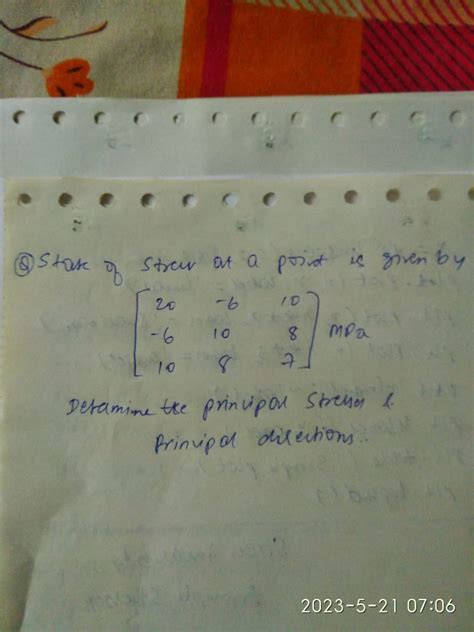 Q State of Stress at a point is given by
20 -6 10
-6 10 8 MPa
10 8 7
Determine the principal Stresses &
Principal directions.
2023-5-21 07:06